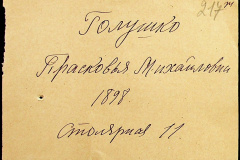 217
Голушко
Прасковья Михайловн
1898.
Столярная 11.